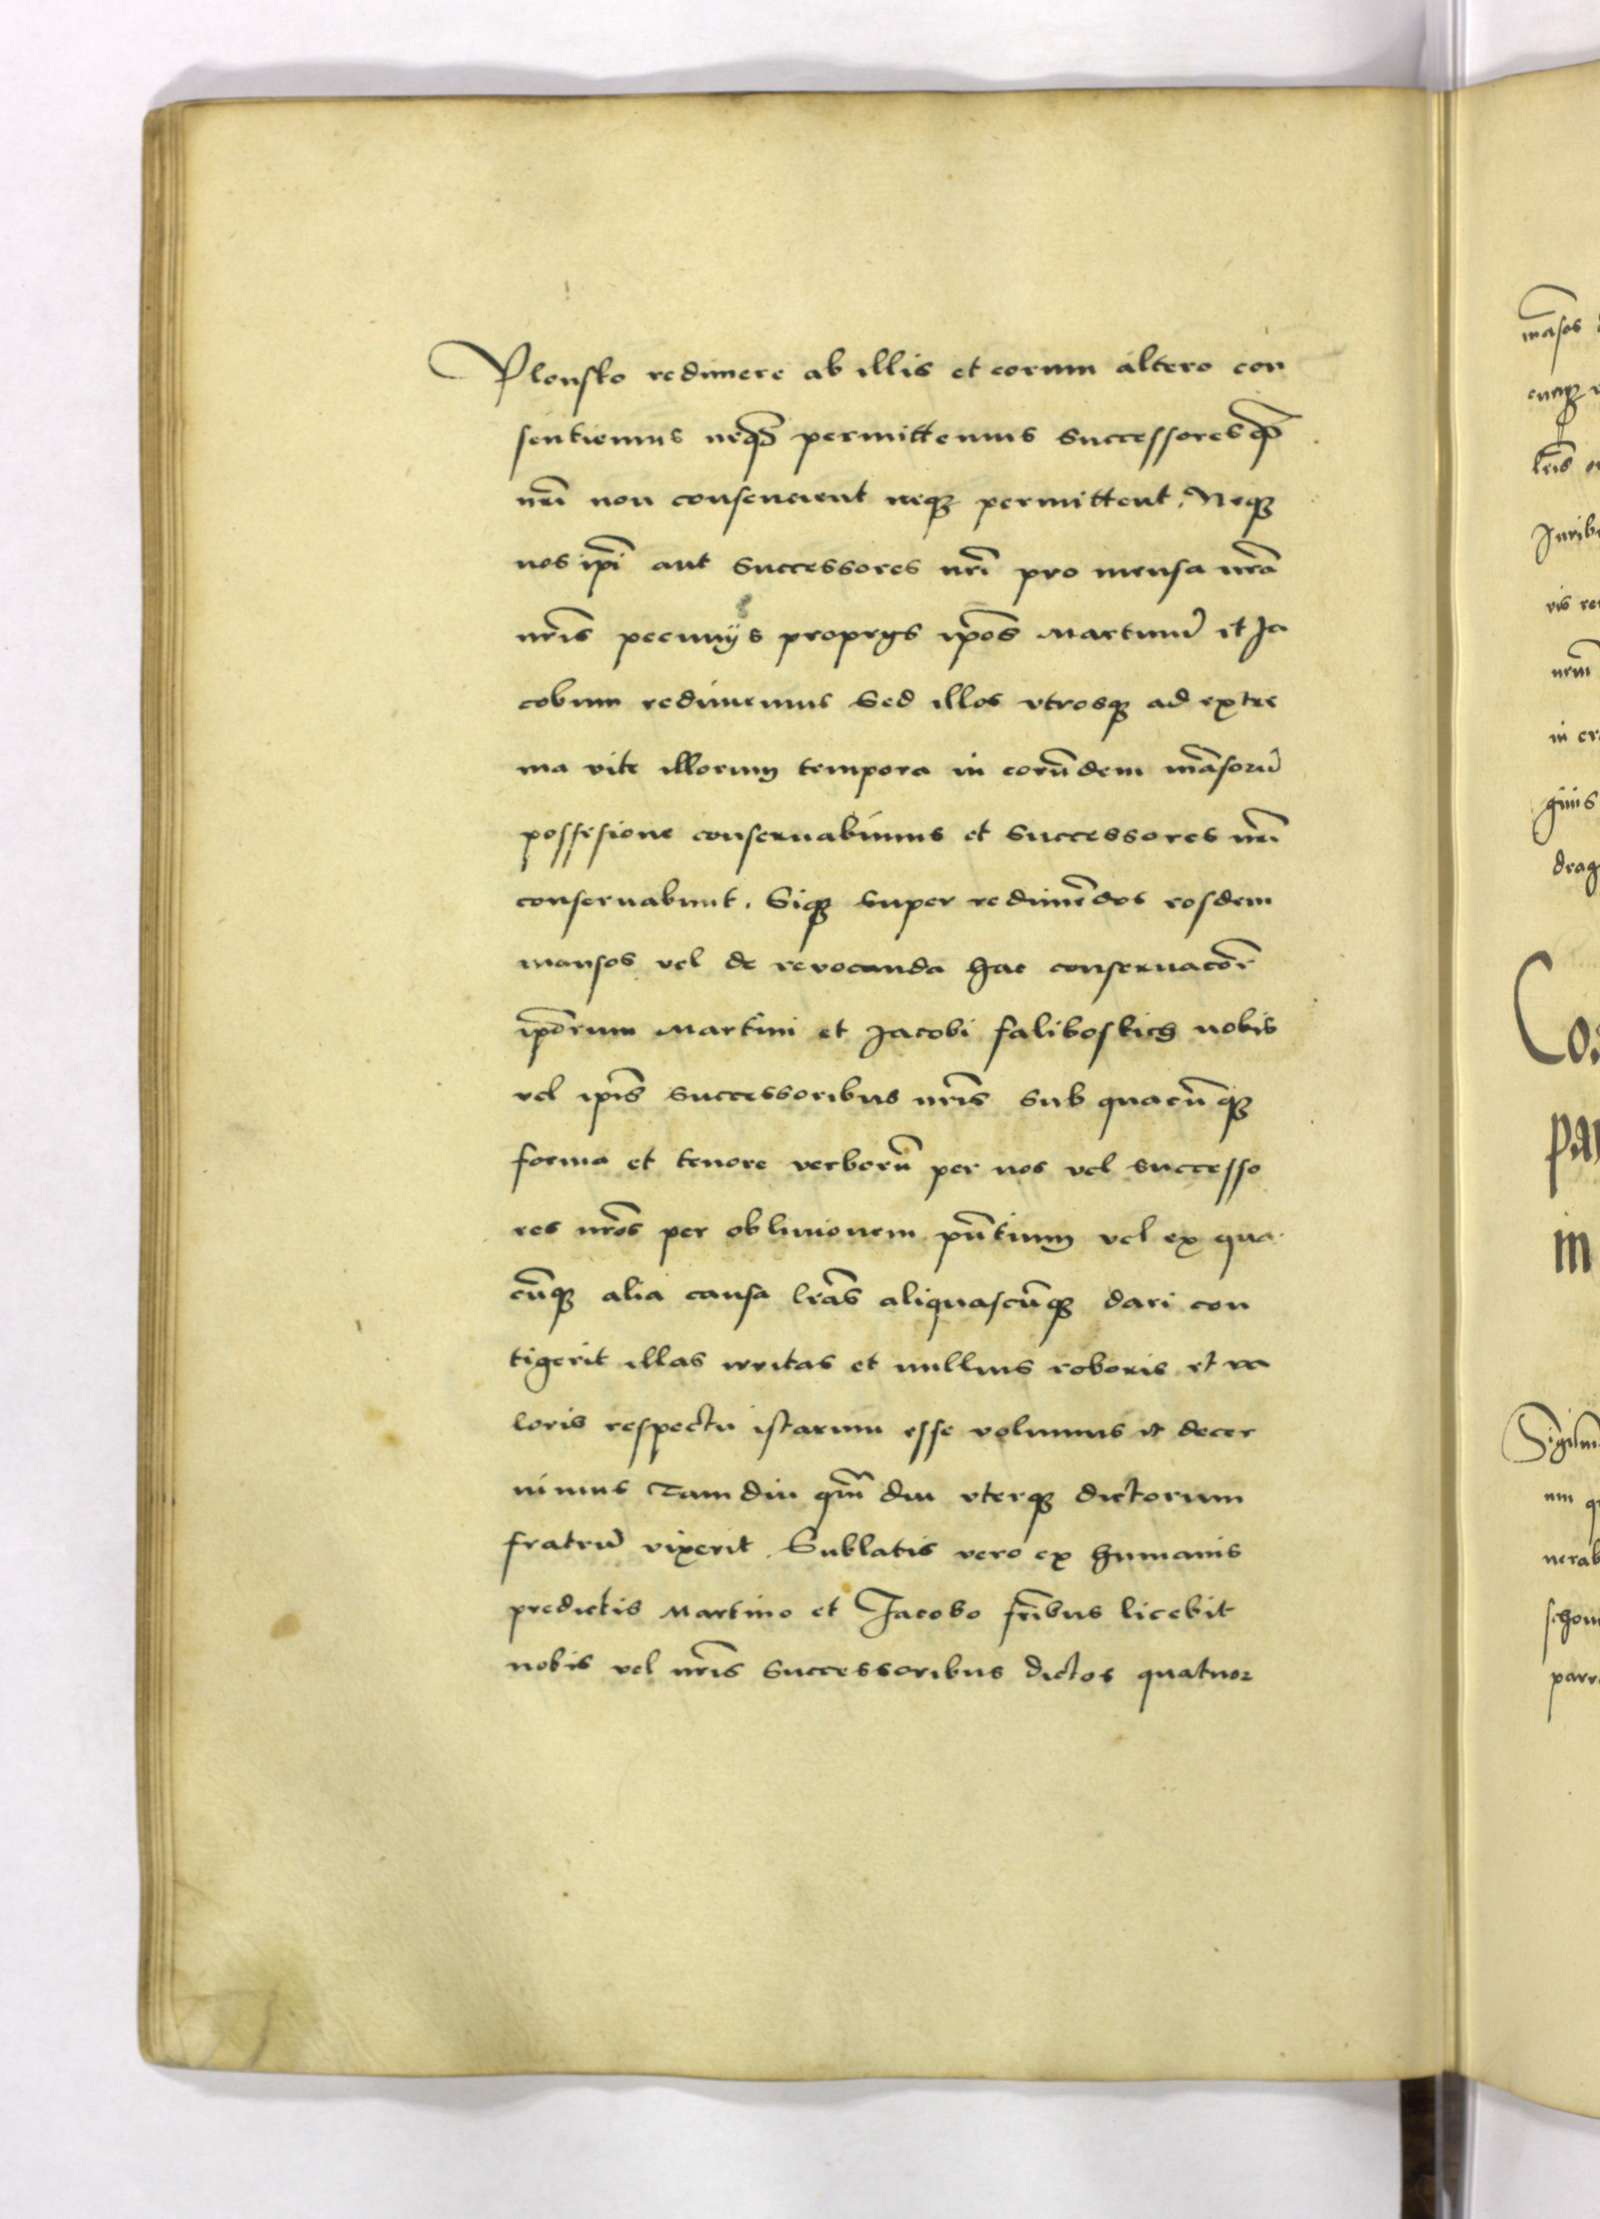 Plonsko redimere ab illis et eorum altero con
sentiemus neq3 permittemus successoresq3
nr̃i non consencient neq3 permittent. Neq3
nos ip̃i aut successores nr̃i pro mensa nr̃a
nr̃is pecunijs proprijs ip̃os Martinũ et Ja
cobum redimemus Sed illos vtrosq3 ad extre
ma vite illorum tempora in eorũdem mãsorũ
possesione conseruabimus et successores nr̃i
conseruabunt. Siq3 super redimẽdos eosdem
mansos vel de reuocanda hac conseruacõe
ip̃orum Martini et Jacobi faliboskich nobis
vel ip̃is successoribus nr̃is sub quacũq3
forma et tenore verborũ per nos vel successo
res nr̃os per obliuionem pñtium vel ex qua
cũq3 alia causa lr̃as aliquascũq3 dari con
tigerit illas irritas et nullius roboris et va
loris respectu istarum esse volumus et decer
nimus Tam diu qm̃ diu vterq3 dictorum
fratrũ vixerit. Sublatis vero ex humanis
predictis Martino et Jacobo fr̃ibus licebit
nobis vel nr̃is successoribus dictos quatuor